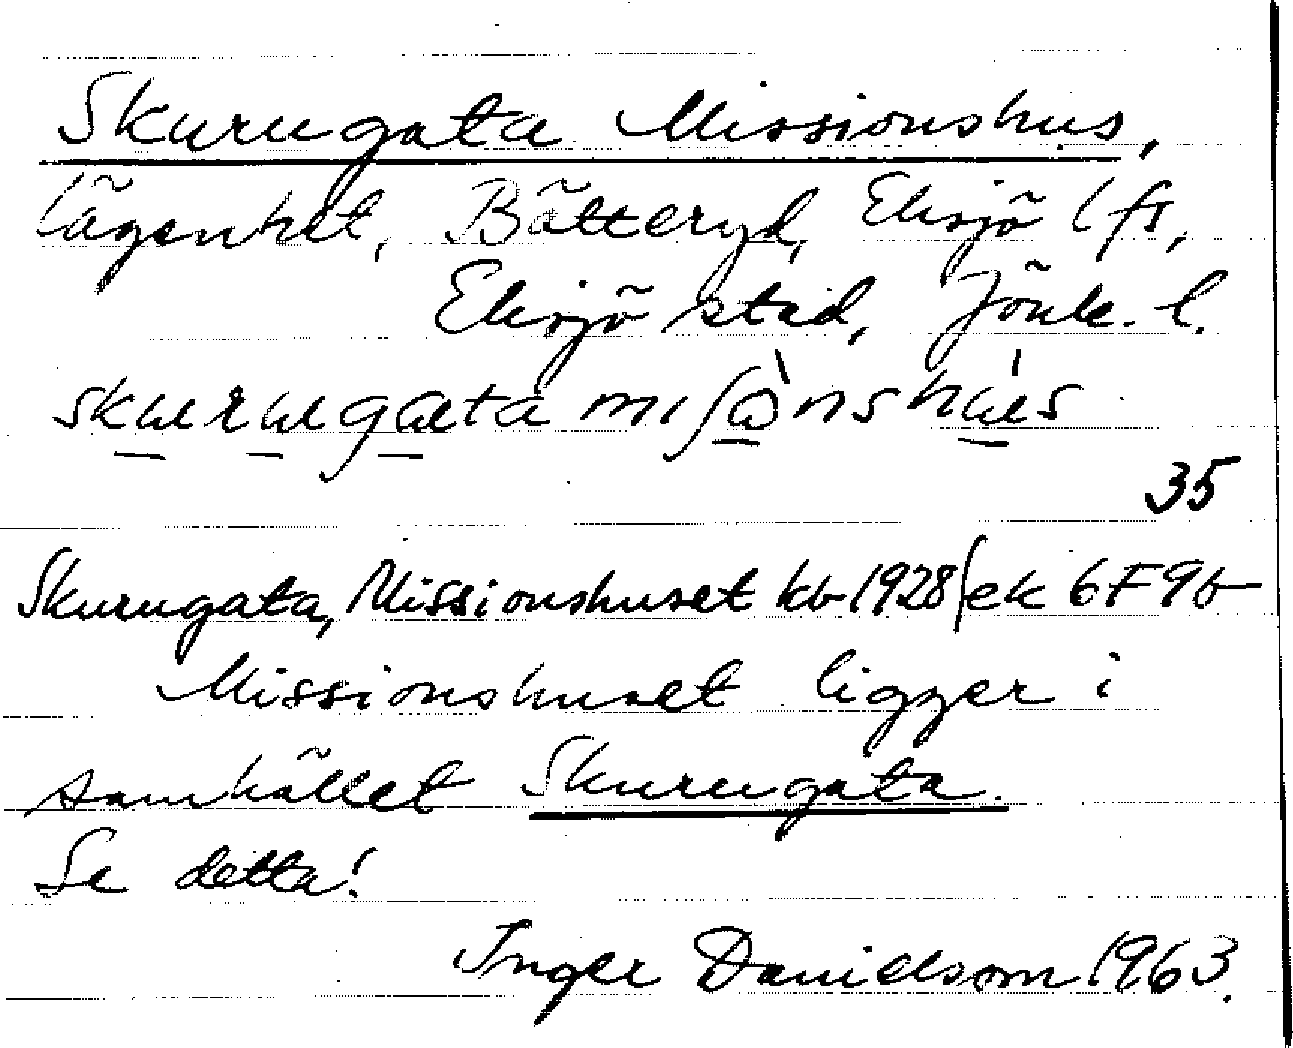 Skurugata Missionshus,
lägenhet, Bätteryd, Eksjö lfs,
Eksjö stad, Jönk. l.
35
Skurugata, Missionshuset kb 1928/ek 6F9b
Missionshuset ligger i
samhället Skurugata.
Se detta!
Inger Danielsson 1963.